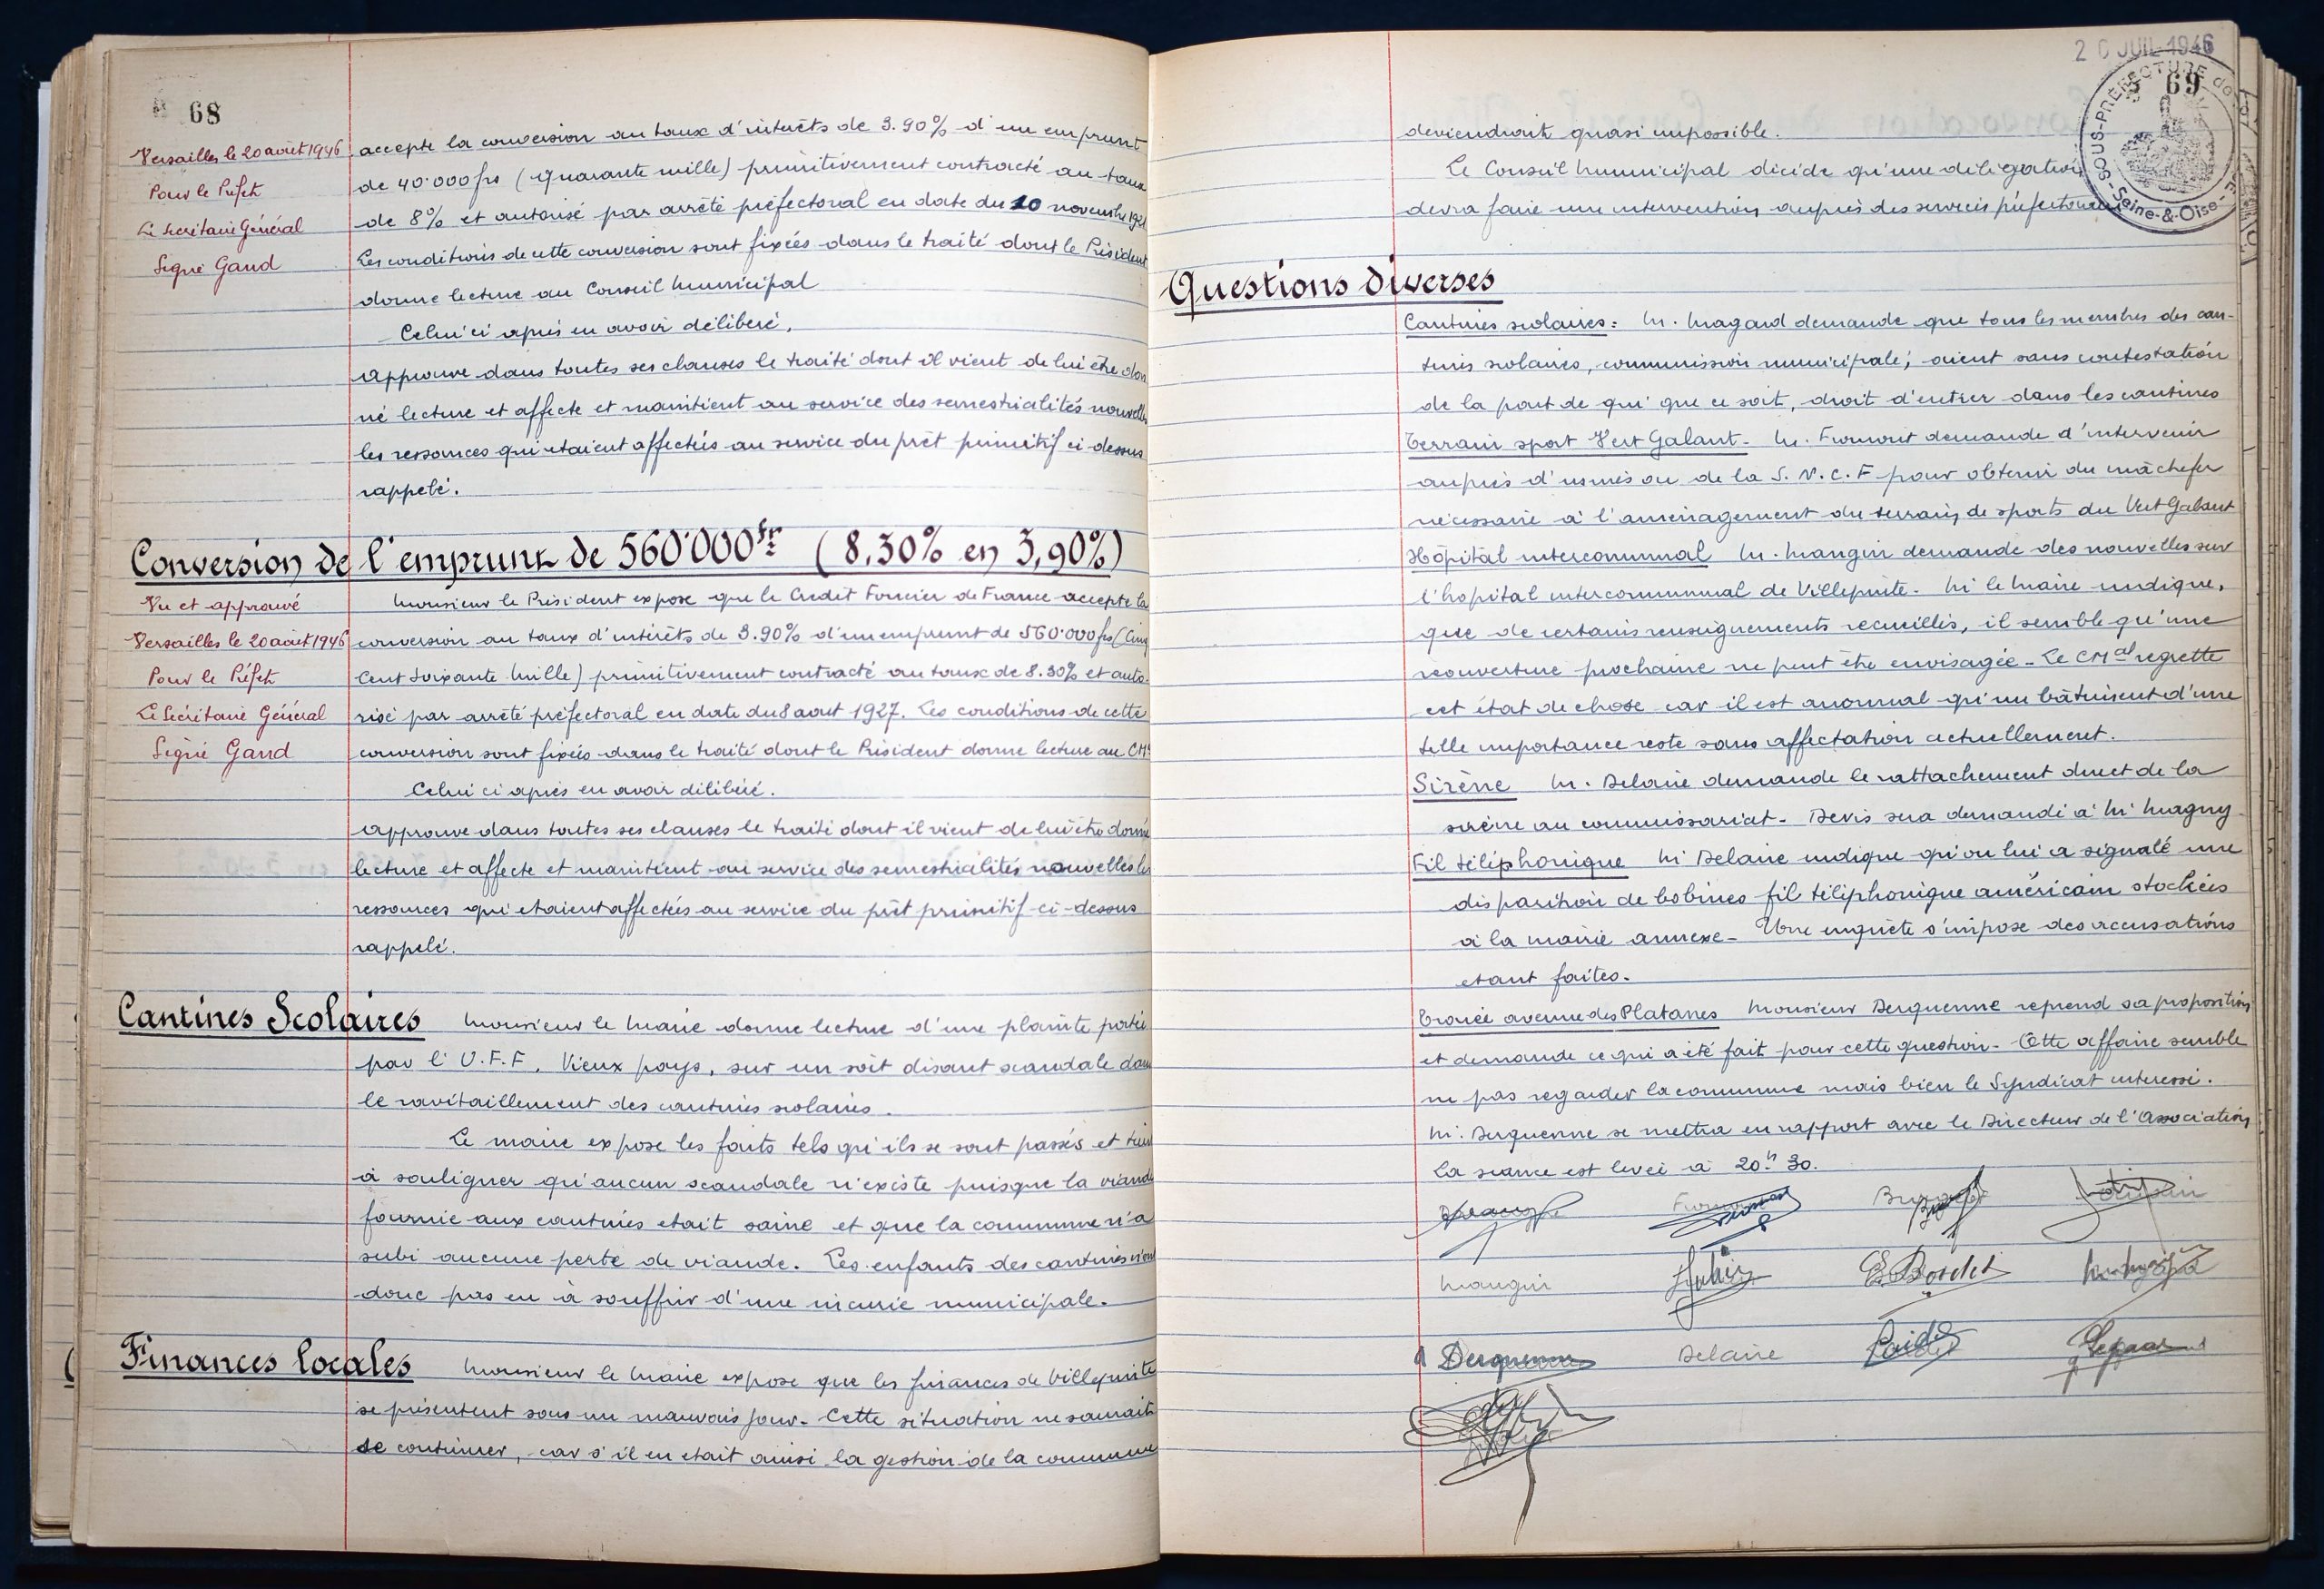 68
Versailles le 20 août 1946
Pour le Préfet
Le Secrétaire Général
Signé Gand
accepte la conversion au taux d'intérêts de 3.90% d'un emprunt
de 40.000 frs (quarante mille) primitivement contracté au taux
de 8% et autorisé par arrêté préfectoral en date du 10 novembre
Les conditions de cette conversion sont fixées dans le traité dont le Président
donne lecture au Conseil Municipal
Celui ci après en avoir délibéré,
Approuve dans toutes ses clauses le traité dont il vient de lui être don
né lecture et affecte et maintient au service des semestrialités nouvelles
les ressources qui etaient affectées au service du prêt primitif ci-dessus
rappelé.
Conversion de l'emprunt de 560.000 frs (8,30% en 3,90%)
Vu et approuvé
Versailles le 20 août 1946
Pour le Préfet
Le Secrétaire Général
Signé Gand
Monsieur le Président expose que le Crédit Foncier de France accepte la
conversion au taux d'intérêts de 3.90% d'un emprunt de 560.000 frs (Cinq
Cent Soixante Mille) primitivement contracté au taux de 8.30% et auto-
risé par arrêté préfectoral en date du 8 aout 1927. Les conditions de cette
conversion sont fixées dans le traité dont le Président donne lecture au CM
Celui ci après en avoir délibéré.
Approuve dans toutes ses clauses le traité dont il vient de lui être donné
lecture et affecte et maintient au service des semestrialités nouvelles les
ressources qui etaient affectées au service du prêt primitif ci-dessus
rappelé.
Cantines Scolaires Monsieur le Maire donne lecture d'une plainte portée
par l'U.F.F. Vieux pays, sur un soit disant scandale dans
le ravitaillement des cantines scolaires.
Le maire expose les faits tels qu'ils se sont passés et tient
à souligner qu'aucun scandale n'existe puisque la viande
fournie aux cantines etait saine et que la commune n'a
subi aucune perte de viande. Les enfants des cantines n'ont
donc pas eu à souffrir d'une incurie municipale.
Finances locales Monsieur le Maire expose que les finances de Villepinte
se présentent sous un mauvais jour. Cette situation ne saurait
se continuer, car s'il en etait ainsi la gestion de la commune
20 JUIL 1946
69
SOUS-PRÉFECTURE de
Seine-&-Oise
deviendrait quasi impossible.
Le Conseil Municipal décide qu'une délégation
devra faire une intervention auprès des services préfectoraux
Questions diverses
Cantines scolaires: M. Magard demande que tous les membres des can-
tines scolaires, commission municipale, aient sans contestation
de la part de qui que ce soit, droit d'entrer dans les cantines
Terrain sport Vert Galant - M. Fromont demande d'intervenir
auprès d'usines ou de la S.N.C.F pour obtenir du mâchefer
nécessaire à l'aménagement du terrain de sports du Vert Galant
Hôpital intercommunal M. Mangin demande des nouvelles sur
l'hopital intercommunal de Villepinte - M le Maire indique,
que de certains renseignements recueillis, il semble qu'une
réouverture prochaine ne peut être envisagée - Le CMal regrette
cet état de chose car il est anormal qu'un bâtiment d'une
telle importance reste sans affectation actuellement.
Sirène M. Delaire demande le rattachement direct de la
sirène au commissariat - Devis sera demandé à M Magny
Fil téléphonique M Delaire indique qu'on lui a signalé une
disparition de bobines fil téléphonique américain stockées
à la mairie annexe - Une enquête s'impose des accusations
etant faites.
Tracé avenue des Platanes Monsieur Derquenne reprend sa proposition
et demande ce qui a été fait pour cette question - Cette affaire semble
ne pas regarder la commune mais bien le Syndicat interessé.
M. Derquenne se mettra en rapport avec le Directeur de l'Association
La séance est levée à 20h 30.
Mangin
E. Bordet
Derquenne
Delaire